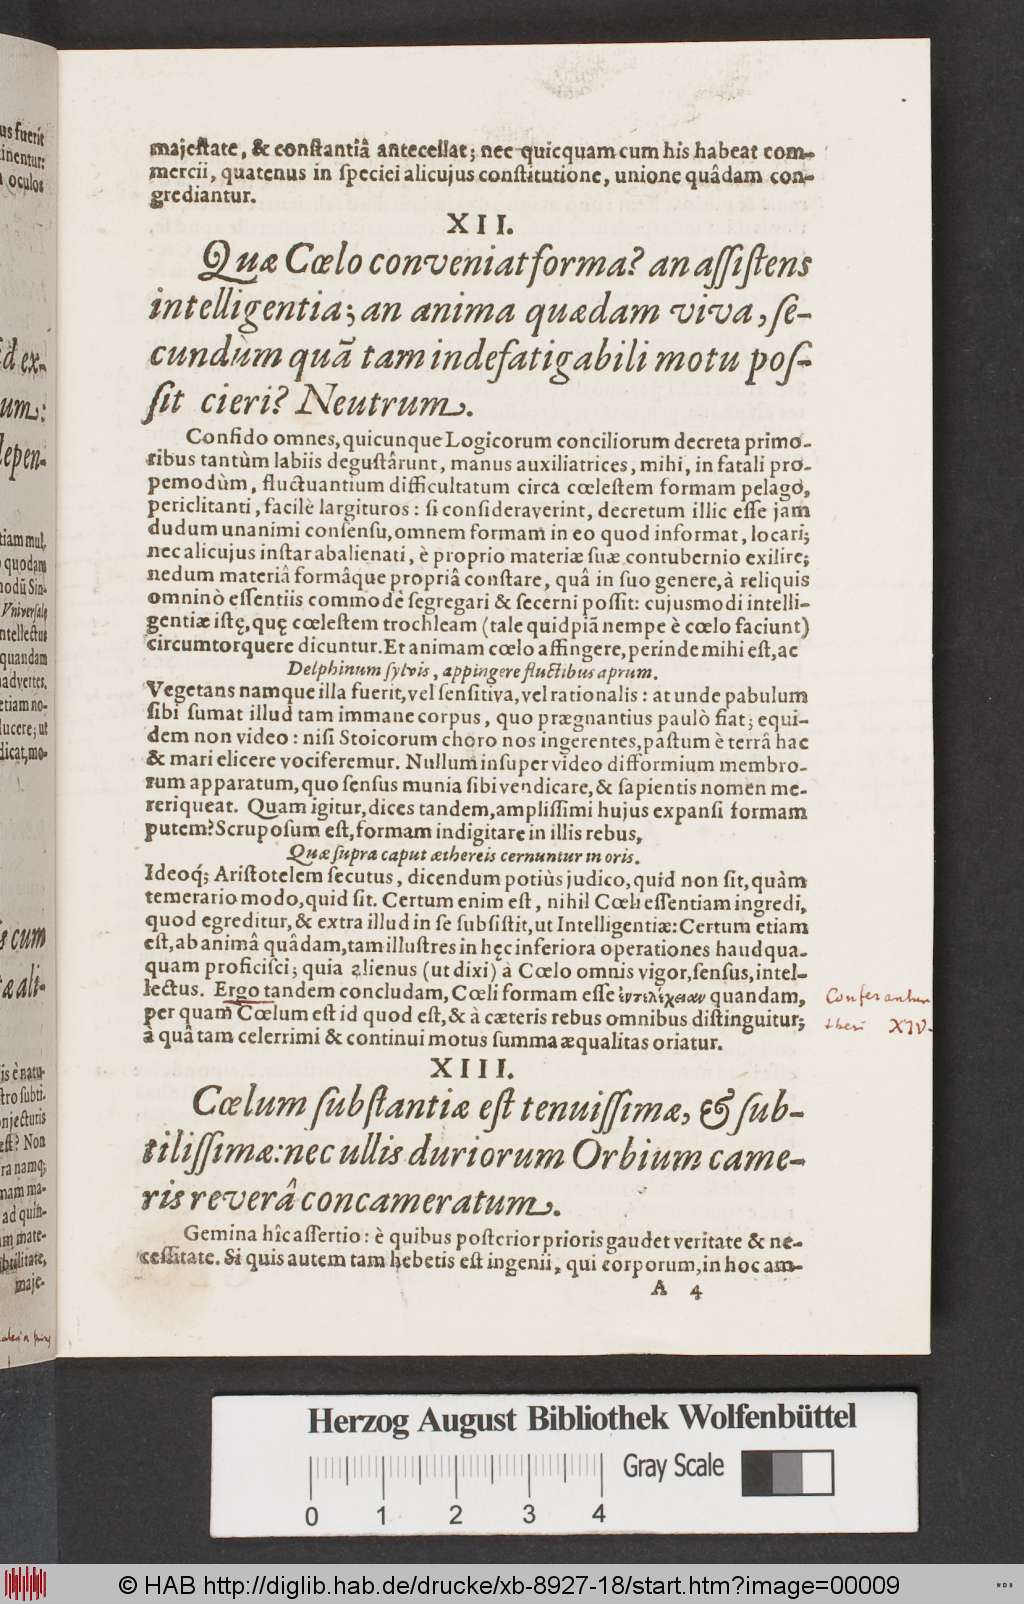 majestate, & constantiâ antecellat; nec quicquam cum his habeat com-
mercii, quatenus in speciei alicujus constitutione, unione quâdam con-
grediantur.
XII.
Quæ Cœlo conveniat forma? an assistens
intelligentia; an anima quædam viva, se-
cundùm quã tam indefatigabili motu pos-
sit cieri? Neutrum.
Confido omnes, quicunque Logicorum conciliorum decreta primo-
ribus tantùm labiis degustârunt, manus auxiliatrices, mihi, in fatali pro-
pemodùm, fluctuantium difficultatum circa cœlestem formam pelago,
periclitanti, facilè largituros: si consideraverint, decretum illic esse jam
dudum unanimi consensu, omnem formam in eo quod informat, locari;
nec alicujus instar abalienati, è proprio materiæ suæ contubernio exilire;
nedum materiâ formâque propriâ constare, quâ in suo genere, à reliquis
omninò essentiis commodè segregari & secerni possit: cujusmodi intelli-
gentiæ istę, quę cœlestem trochleam (tale quid piã nempe è cœlo faciunt)
circumtorquere dicuntur. Et animam cœlo affingere, perinde mihi est, ac
Delphinum sylvis, appingere fluctibus aprum.
Vegetans namque illa fuerit, vel sensitiva, vel rationalis: at unde pabulum
sibi sumat illud tam immane corpus, quo prægnantius paulò fiat; equi-
dem non video: nisi Stoicorum choro nos ingerentes, pastum è terrâ hac
& mari elicere vociferemur. Nullum insuper video difformium membro-
rum apparatum, quo sensus munia sibi vendicare, & sapientis nomen me-
reri queat. Quam igitur, dices tandem, amplissimi hujus expansi formam
putem? Scruposum est, formam indigitare in illis rebus,
Quæ supra caput æthereis cernuntur in oris.
Ideoq́; Aristotelem secutus, dicendum potiùs judico, quid non sit, quàm
temerario modo, quid sit. Certum enim est, nihil Cœli essentiam ingredi,
quod egreditur, & extra illud in se subsistit, ut Intelligentiæ: Certum etiam
est, ab animâ quâdam, tam illustres in hęc inferiora operationes haudqua-
quam proficisci; quia alienus (ut dixi) à Cœlo omnis vigor, sensus, intel-
lectus. Ergo tandem concludam, Cœli formam esse ἐντελέχειαν quandam,
per quam Cœlum est id quod est, & à cæteris rebus omnibus distinguitur;
à quâ tam celerrimi & continui motus summa æqualitas oriatur.
Conferantur
thesi XIV.
XIII.
Cœlum substantiæ est tenuissimæ, & sub-
tilissimæ: nec ullis duriorum Orbium came-
ris reverâ concameratum.
Gemina hîc assertio: è quibus posterior prioris gaudet veritate & ne-
cessitate. Si quis autem tam hebetis est ingenii, qui corporum, in hoc am-
A 4
us fuerit
tinentur:
oculos
d ex-
um:
depen-
tiam mul-
quodam
modũ Sin-
Vniversale
ntellectus
quandam
advertes.
etiam no-
lucere; ut
dicat, mo-
s cum
æ ali-
is è natu-
stro subti-
onjecturis
est? Non
ra namq;
nam ma-
ad quin-
am mate-
ibilitate,
maje-
Herzog August Bibliothek Wolfenbüttel
Gray Scale
0 1 2 3 4
© HAB http://diglib.hab.de/drucke/xb-8927-18/start.htm?image=00009